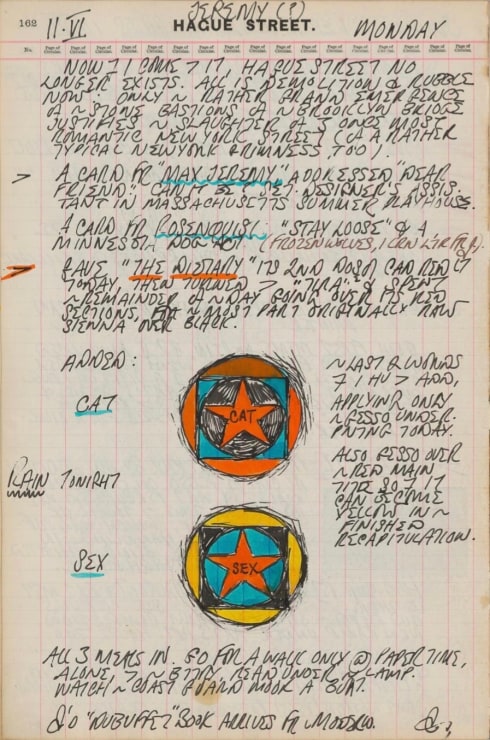 JEREMY (?)
162 11-VI HAGUE STREET. MONDAY
No. Page of Circular. Page of Circular. Page of Circular. Page of Circular. Page of Circular. Page of Circular. Page of Circular. Page of Circular. Page of Circular. Page of Circular. Page of Circular. Page of Circular.
NOW 7 I COME > IT, HAGUE STREET NO
LONGER EXISTS. ALL IS DEMOLITION & RUBBLE
NOW ~ ONLY ~ RATHER GRAND EMERGENCE
OF ~ STONE BASTIONS OF ~ BROOKLYN BRIDGE
JUSTIFIES ~ SLAUGHTER OF ONCE MOST
ROMANTIC NEW YORK STREET (OF A RATHER
TYPICAL NEW YORK GRIMNESS, TOO).
> A CARD FR "MAX JEREMY," ADDRESSED "DEAR
FRIEND" > BE A SET DESIGNER'S ASSIS-
TANT IN MASSACHUSETTS SUMMER PLAYHOUSE.
A CARD FR ROSENQUIST. "STAY LOOSE" & A
MINNESOTA DOG (FROZEN WOLVES,
> GAVE "THE DIETARY" ITS 2ND CAD RED
TODAY, THEN TURNED > & SPENT
~ REMAINDER OF ~ DAY GOING OVER ITS RED
SECTIONS, FR ~ MOST PART ORIGINALLY RAW
SIENNA OVER BLACK.
ADDED:
CAT
CAT
~ LAST 2 WORDS
7 I HV > ADD,
APPLYING ONLY
~ GESSO UNDER-
PNTING TODAY.
ALSO GESSO OVER
~ RED MAIN
TITLE SO 7 IT
CAN BECOME
YELLOW IN ~
FINISHED
RECAPITULATION.
RAIN TONIGHT
SEX
SEX
ALL 3 MEALS IN. GO FOR A WALK ONLY @ PAPERTIME,
ALONE, > ~ BTTRY, READ UNDER ~ LAMP.
WATCH ~ COAST GUARD MOOR A BOAT.
"DUBUFFET" BOOK ARRIVES FR ~ MODERN.